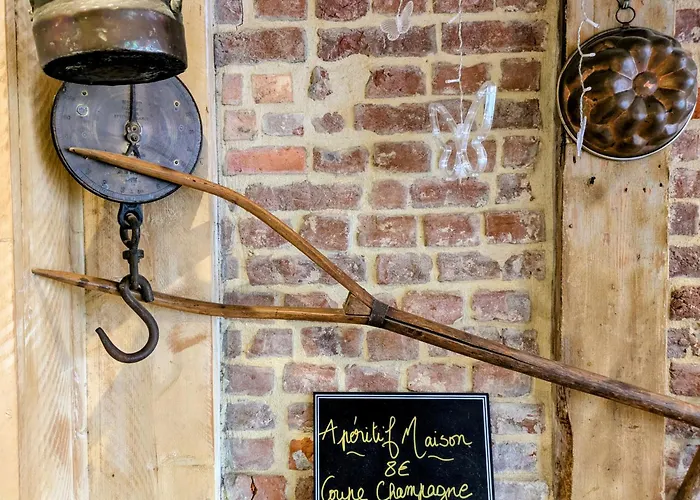 Apéritif Maison
8€
Coupe Champagne